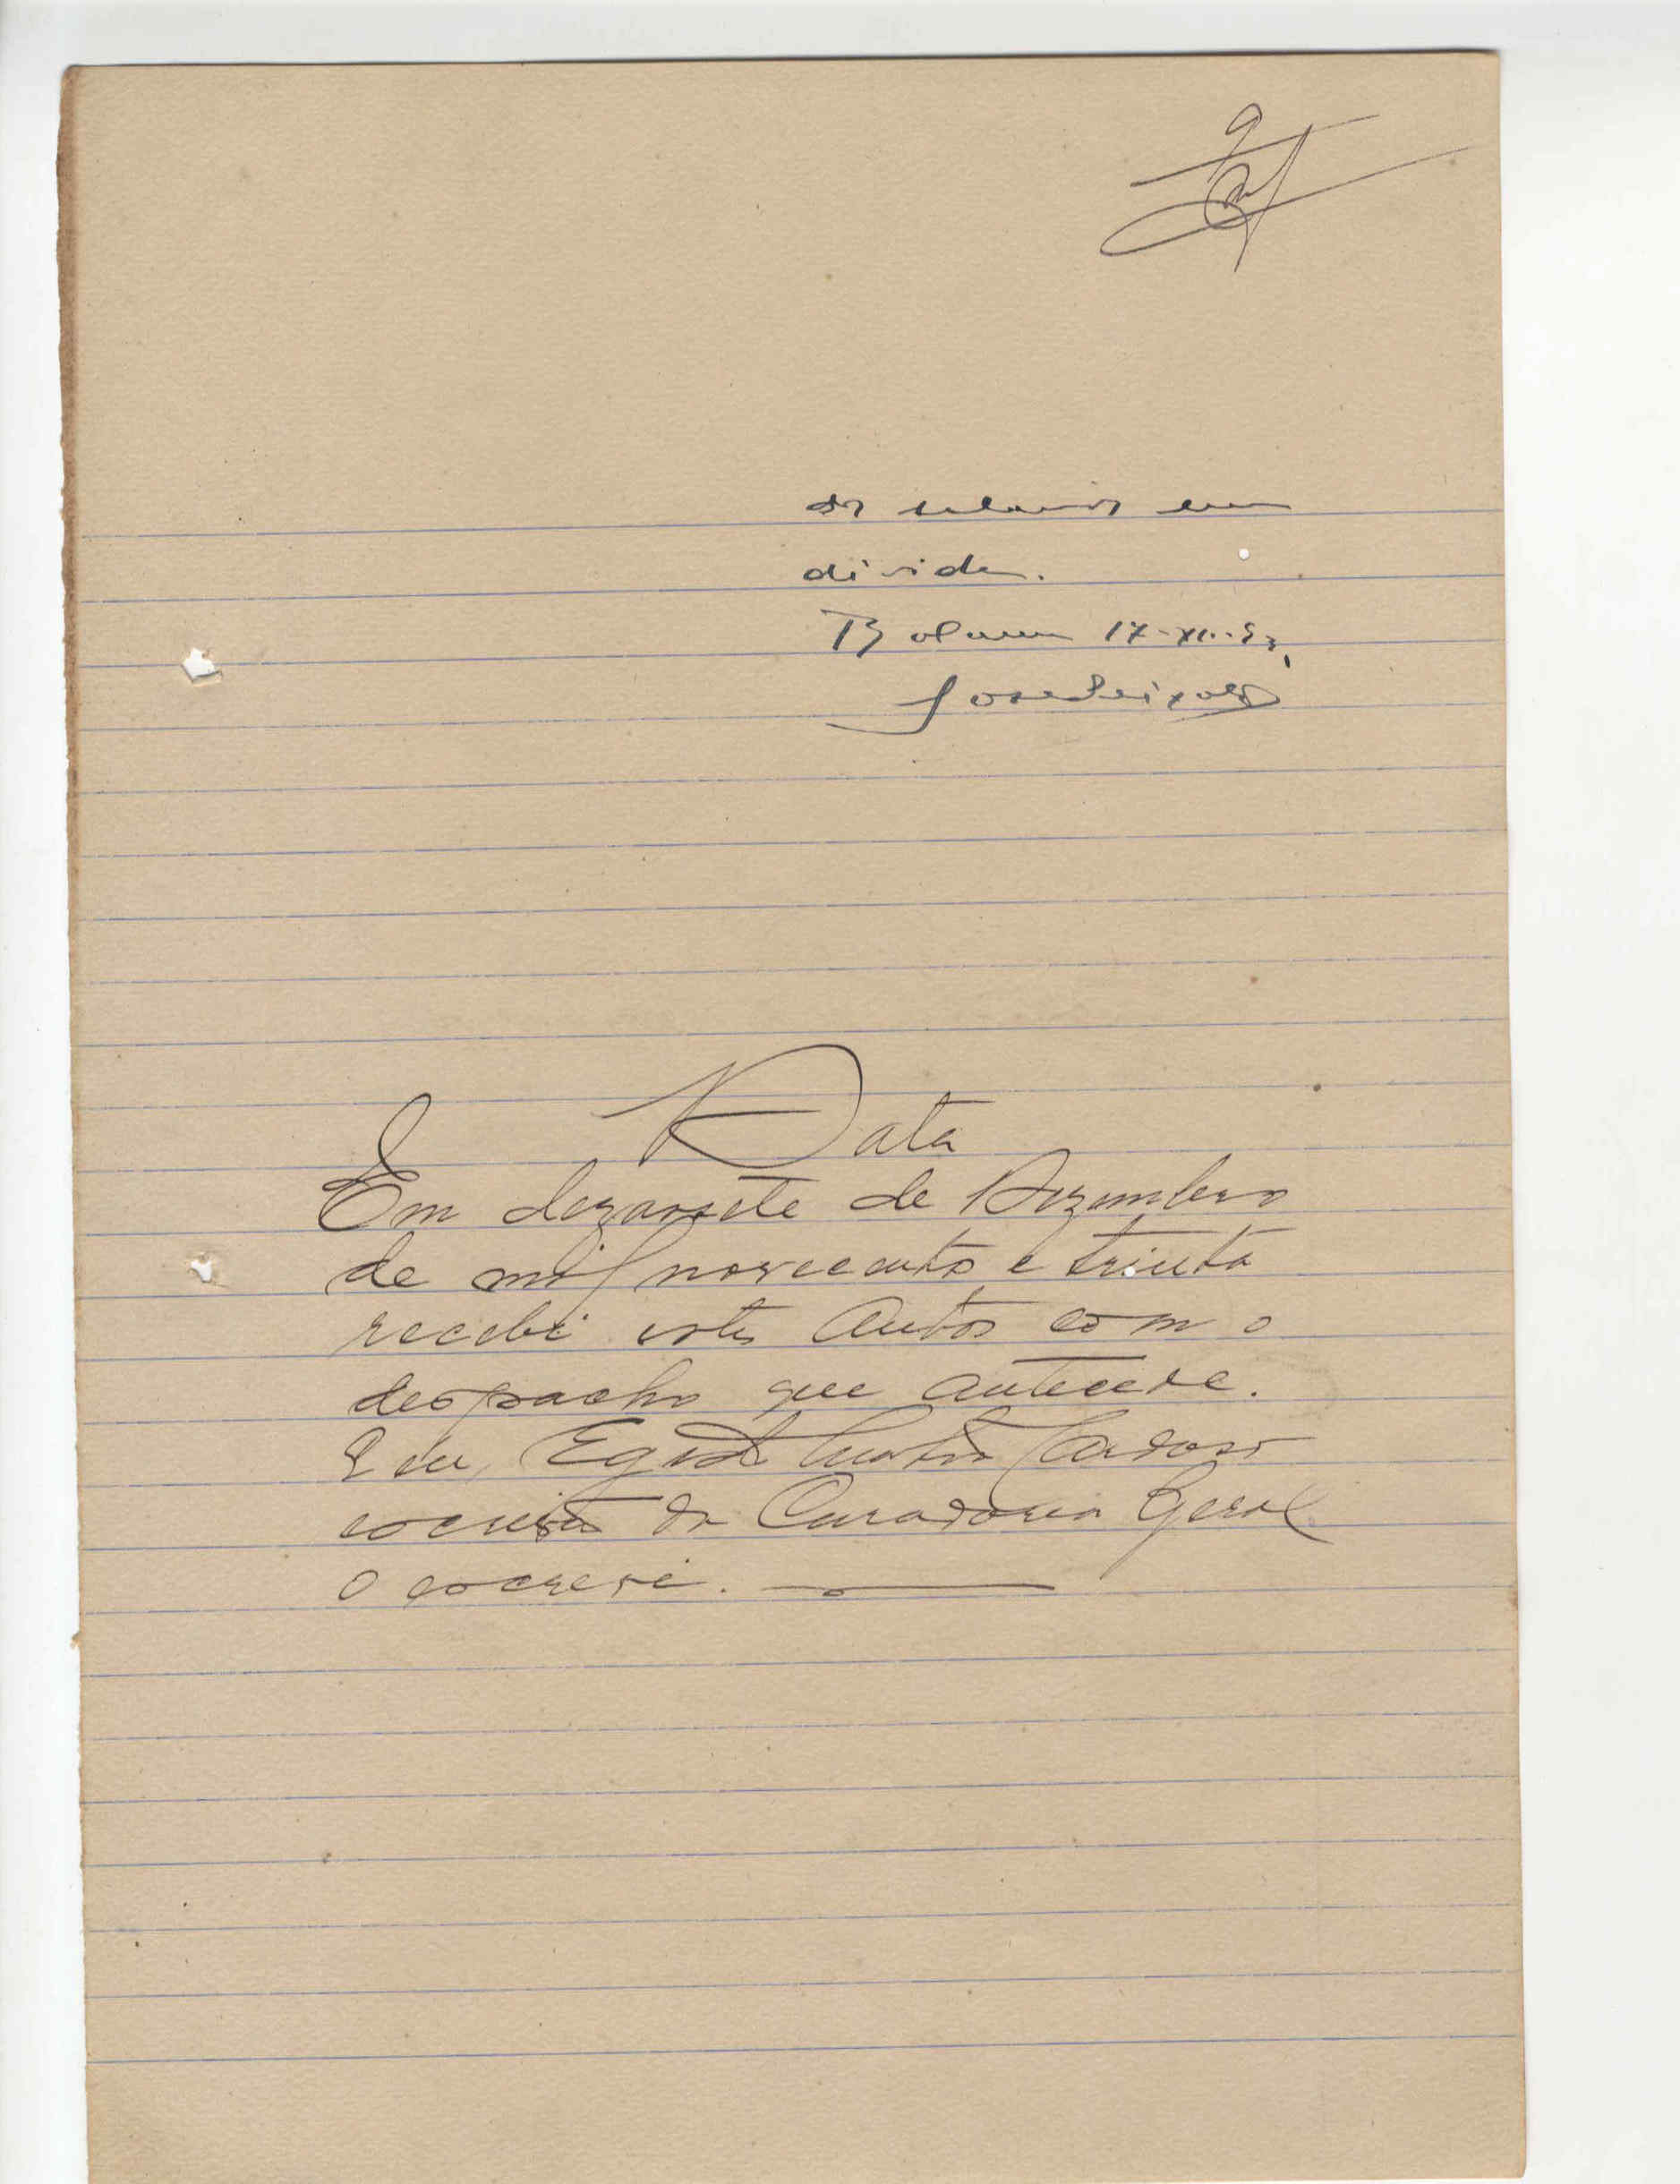 9
dos salarios em
divida.
17-XII-
Data
Em dezassete de Dezembro
de mil novecentos e trinta
recebi estes autos com o
despacho que antecede.
E eu, Cardoso
escrivão da Curadoria Geral
o escrevi.